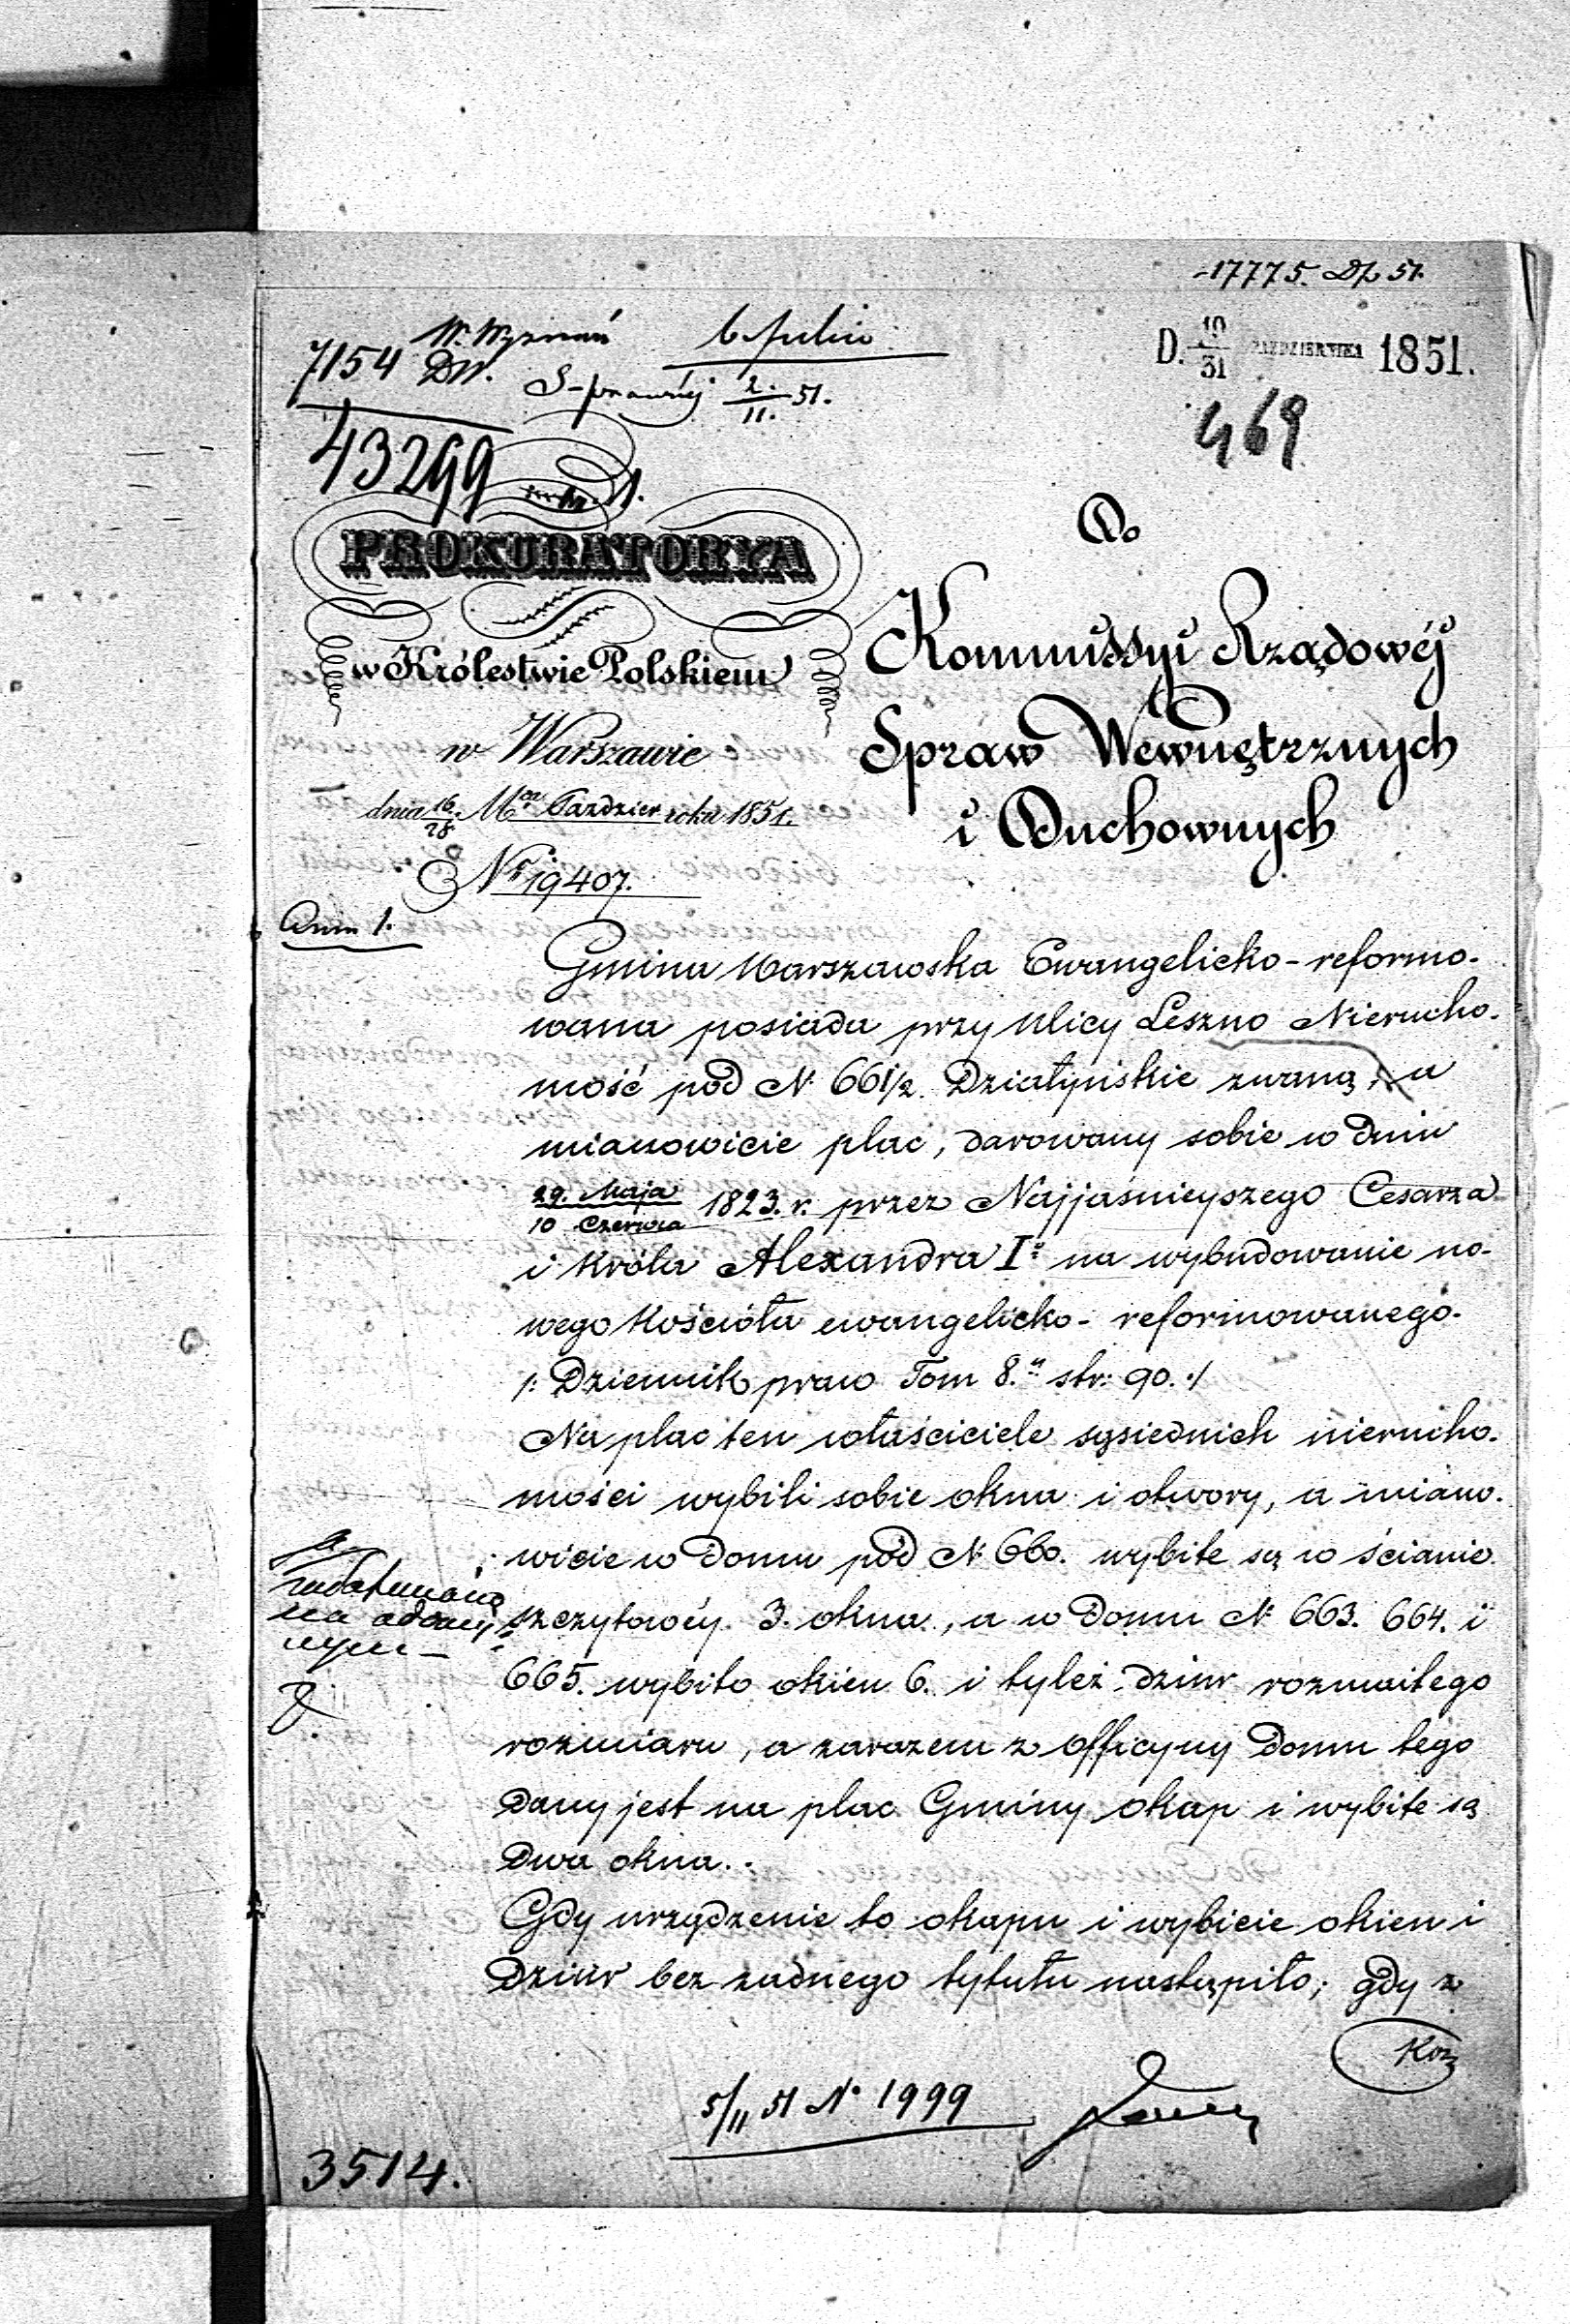 17775. 51.
D. 19/31 PAŹDZIERNIKA 1851.
W. Wyznań
7154 DW.
2./11. 51.
469
43299
PROKURATORYA
w Królestwie Polskiem
w Warszawie
dnia 16/28. Mca Paździer roku 1851.
Nr 19407.
Do
Kommissyi Rządowéj
Spraw Wewnętrznych
i Duchownych
Gmina Warszawska Ewangelicko-reformo-
wana posiada przy Ulicy Leszno Nierucho-
mość pod N 661/2. Działyńskie zwaną, a
mianowicie plac, darowany sobie w dniu
29. Maja/10 Czerwca 1823. r. przez Najjaśnieyszego Cesarza
i Króla Alexandra Io na wybudowanie no-
wego Kościoła ewangelicko-reformowanego.
/: Dziennik praw Tom 8. str: 90. :/
Na plac ten właściciele sąsiednich nierucho-
mości wybili sobie okna i otwory, a miano-
wicie w domu pod N 660. wybite są w ścianie
szczytowéy 3. okna, a w domu N 663. 664. i
665. wybito okien 6. i tyleż dziur rozmaitego
rozmiaru, a zarazem z officyny domu tego
dany jest na plac Gminy okap i wybite są
dwa okna.
Gdy urządzenie to okapu i wybicie okien i
dziur bez żadnego tytułu nastąpiło; gdy z
5/11 51 No 1999
3514.